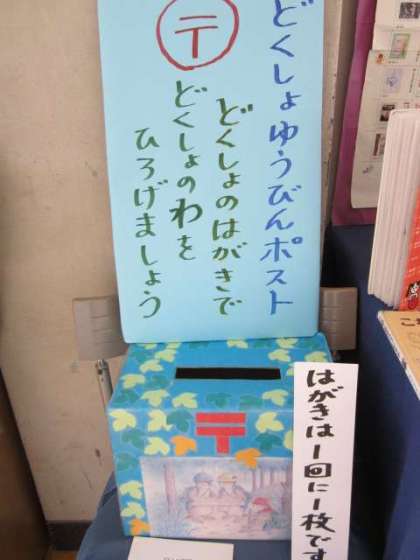 どくしょゆうびんポスト
〒
どくしょのはがきで
どくしょのわを
ひろげましょう
〒
はがきは1回に1枚です